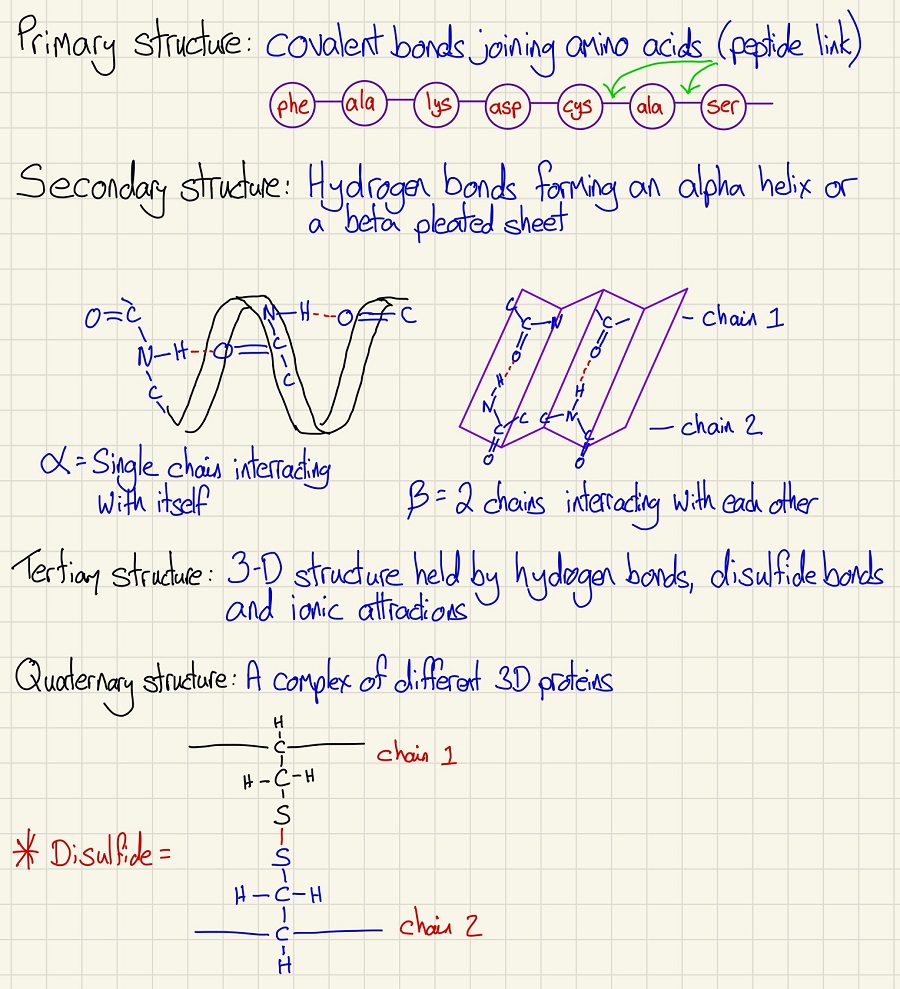 Primary structure: covalent bonds joining amino acids (peptide link)
phe ala lys asp cys ala ser
Secondary structure: Hydrogen bonds forming an alpha helix or
a beta pleated sheet
O=C
N-H---O=C
C
N-H---O=C
C
C
C
C-N
O
H
N
C
C
O
C-
O
H
C-N
C
O
- chain 1
- chain 2
α = Single chain interracting
with itself
β = 2 chains interracting with each other
Tertiary structure: 3-D structure held by hydrogen bonds, disulfide bonds
and ionic attractions
Quaternary structure: A complex of different 3D proteins
H
C
chain 1
H-C-H
S
* Disulfide =
S
H-C-H
C
chain 2
H